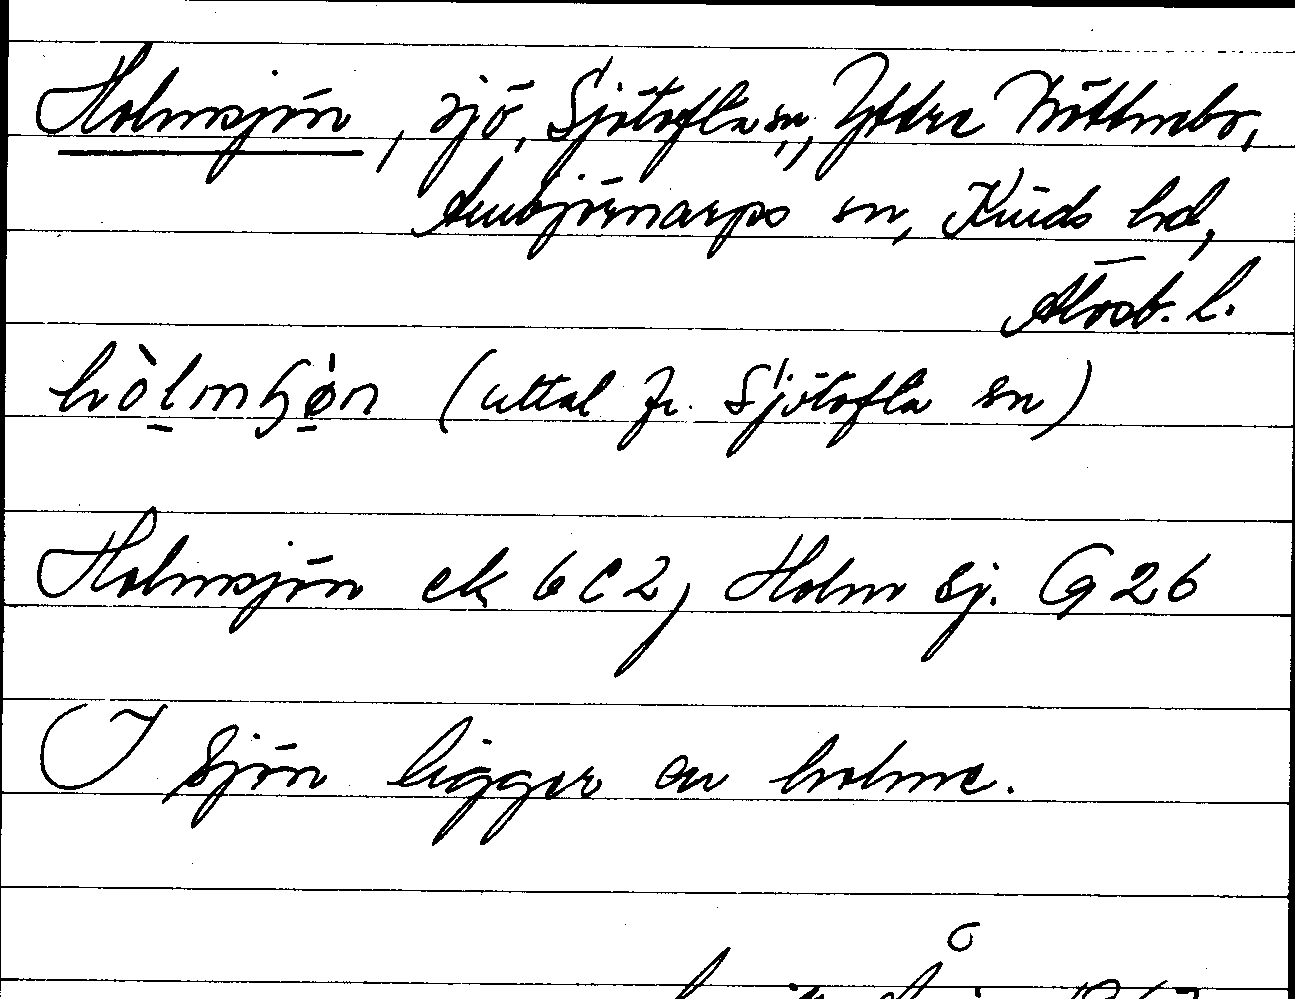 Holmsjön, sjö, Sjötofta sn, Yttre Tvättmebo,
Ambjörnarps sn, Kinds hd,
Älvsb. l.
hòlmʃø̀n (uttal fr. Sjötofta sn)
Holmsjön ek 6C2, Holm Sj. G26
I sjön ligger en holme.